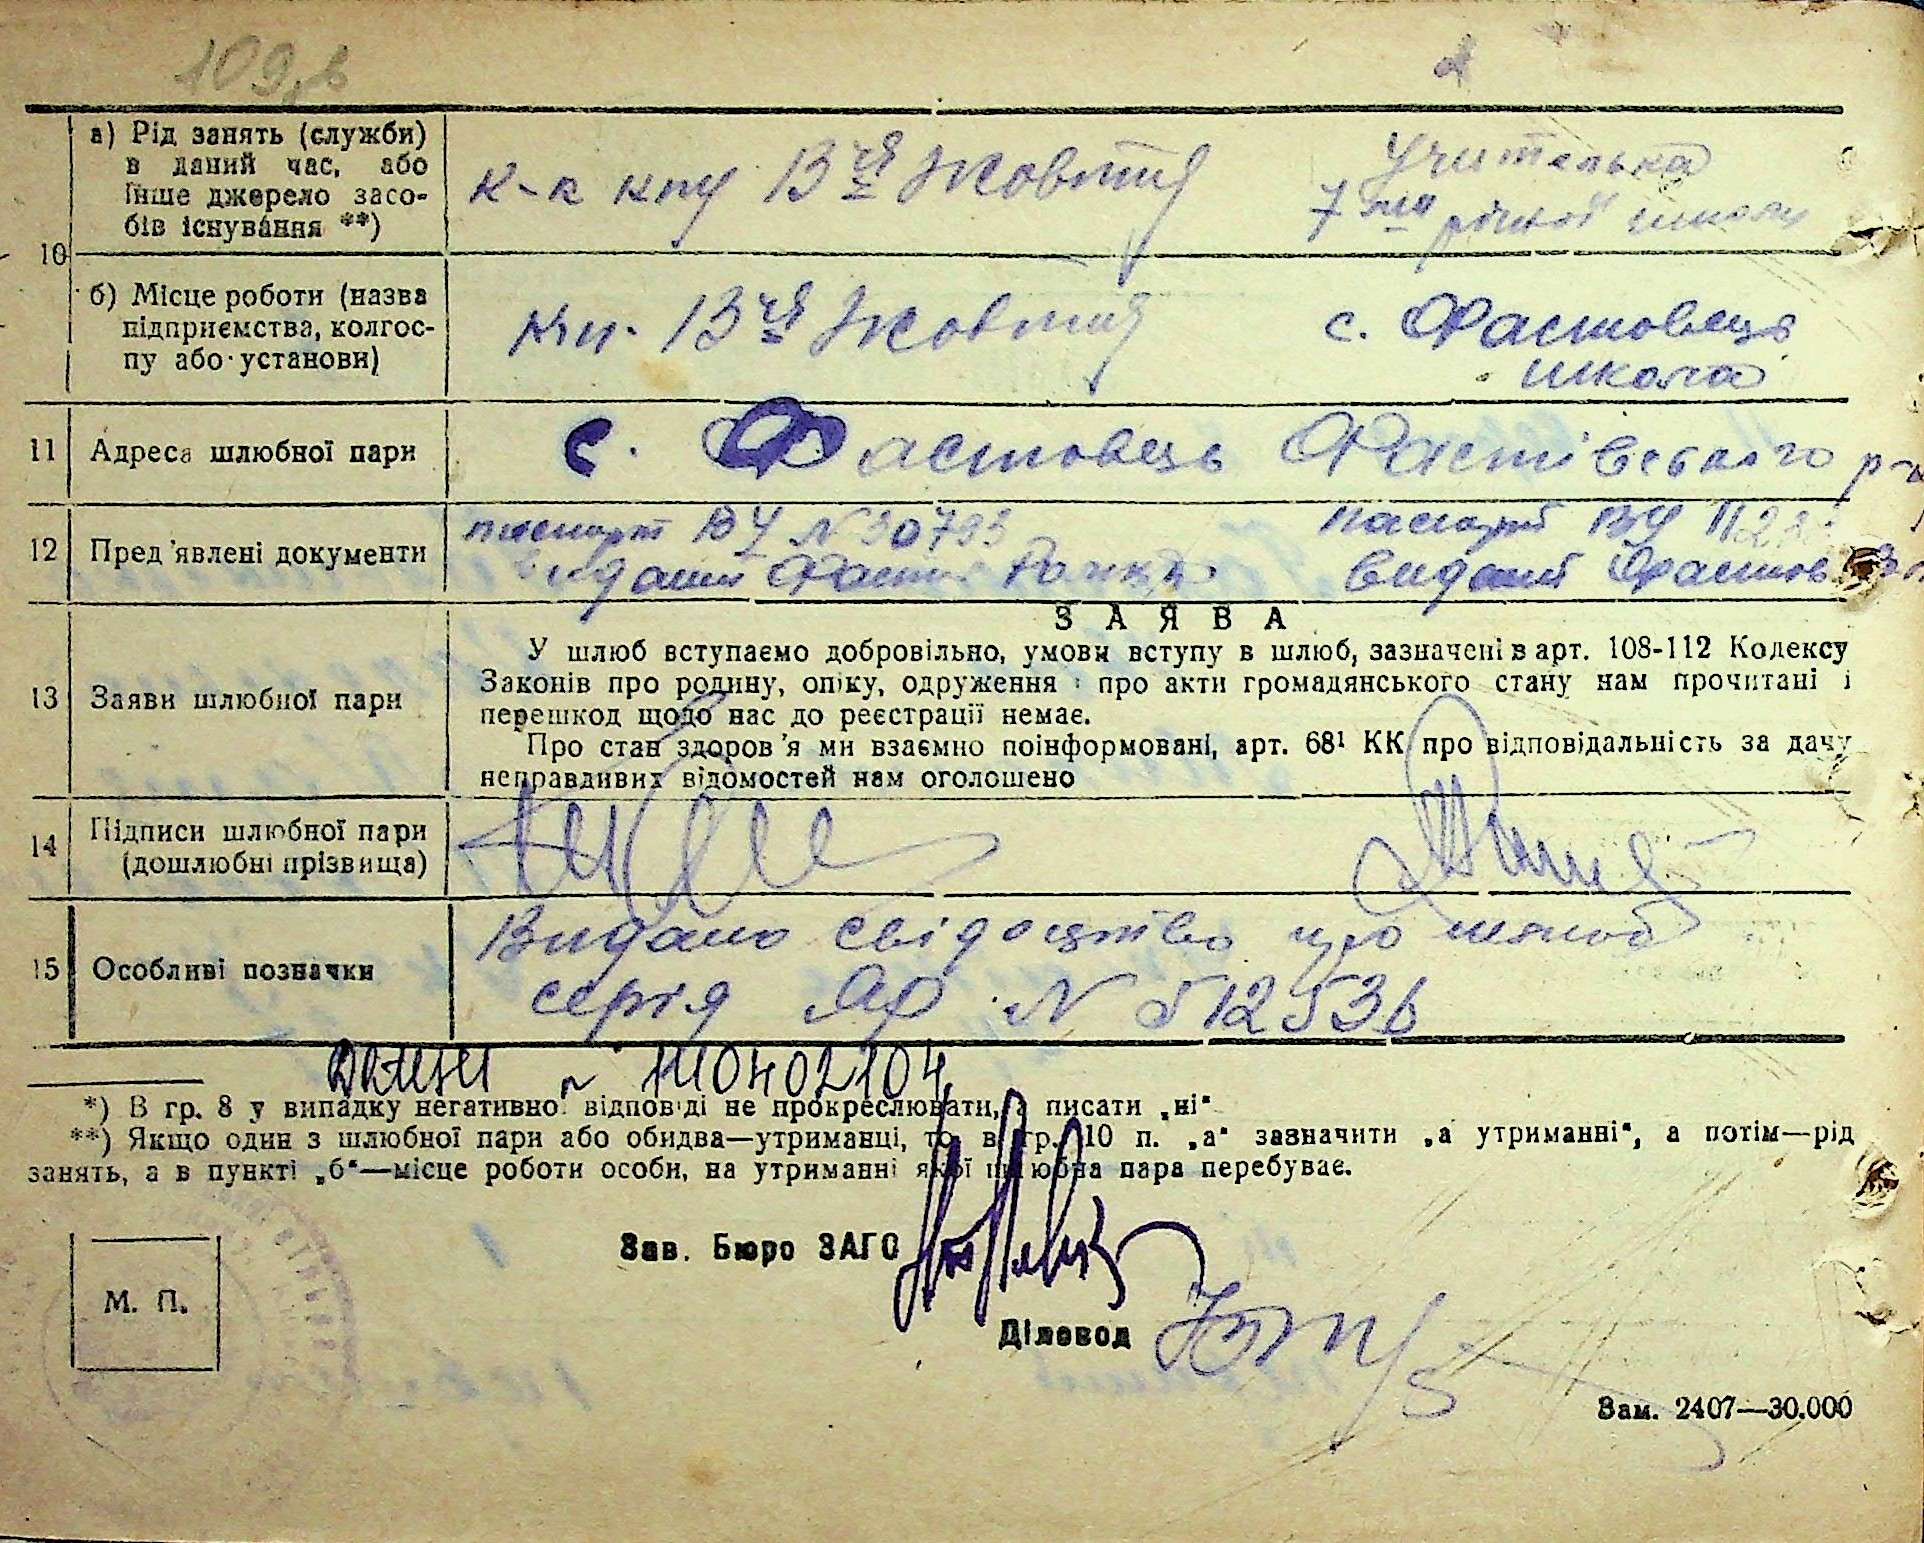 109
а) Рід занять (служби)
в даний час, або
інше джерело засо-
бів існування **)
к-к кпу ВЧЯ Жовтня
Учителька
7 ми річної школи
10
б) Місце роботи (назва
підприємства, колгос-
пу або установи)
ВЧЯ Жовтня
с. Фастовець
школа
11 Адреса шлюбної пари с. Фастовець Фастівського р-н
12 Пред'явлені документи
паспорт ВУ N 30793
виданий
паспорт ВУ
виданий Фастов
13 Заяви шлюбної пари
ЗАЯВА
У шлюб вступаємо добровільно, умови вступу в шлюб, зазначені в арт. 108-112 Кодексу
Законів про родину, опіку, одруження і про акти громадянського стану нам прочитані і
перешкод щодо нас до реєстрації немає.
Про стан здоров'я ми взаємно поінформовані, арт. 68¹ КК про відповідальність за дачу
неправдивих відомостей нам оголошено
14 Підписи шлюбної пари
(дошлюбні прізвища)
15 Особливі позначки
Видано свідоцтво про шлюб
серія ЯФ N 512536
*) В гр. 8 у випадку негативної відповіді не прокреслювати, а писати „ні“
**) Якщо один з шлюбної пари або обидва—утриманці, то в гр. 10 п. „а“ зазначити „а утриманні“, а потім—рід
занять, а в пункті „б“—місце роботи особи, на утриманні якої шлюбна пара перебуває.
Зав. Бюро ЗАГС
М. П.
Діловод
Зам. 2407—30.000